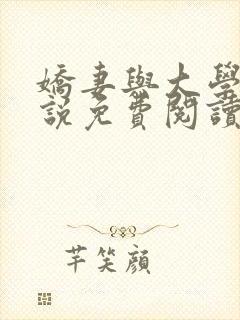 嬌妻與大學
說免費閱讀
芊笑顏